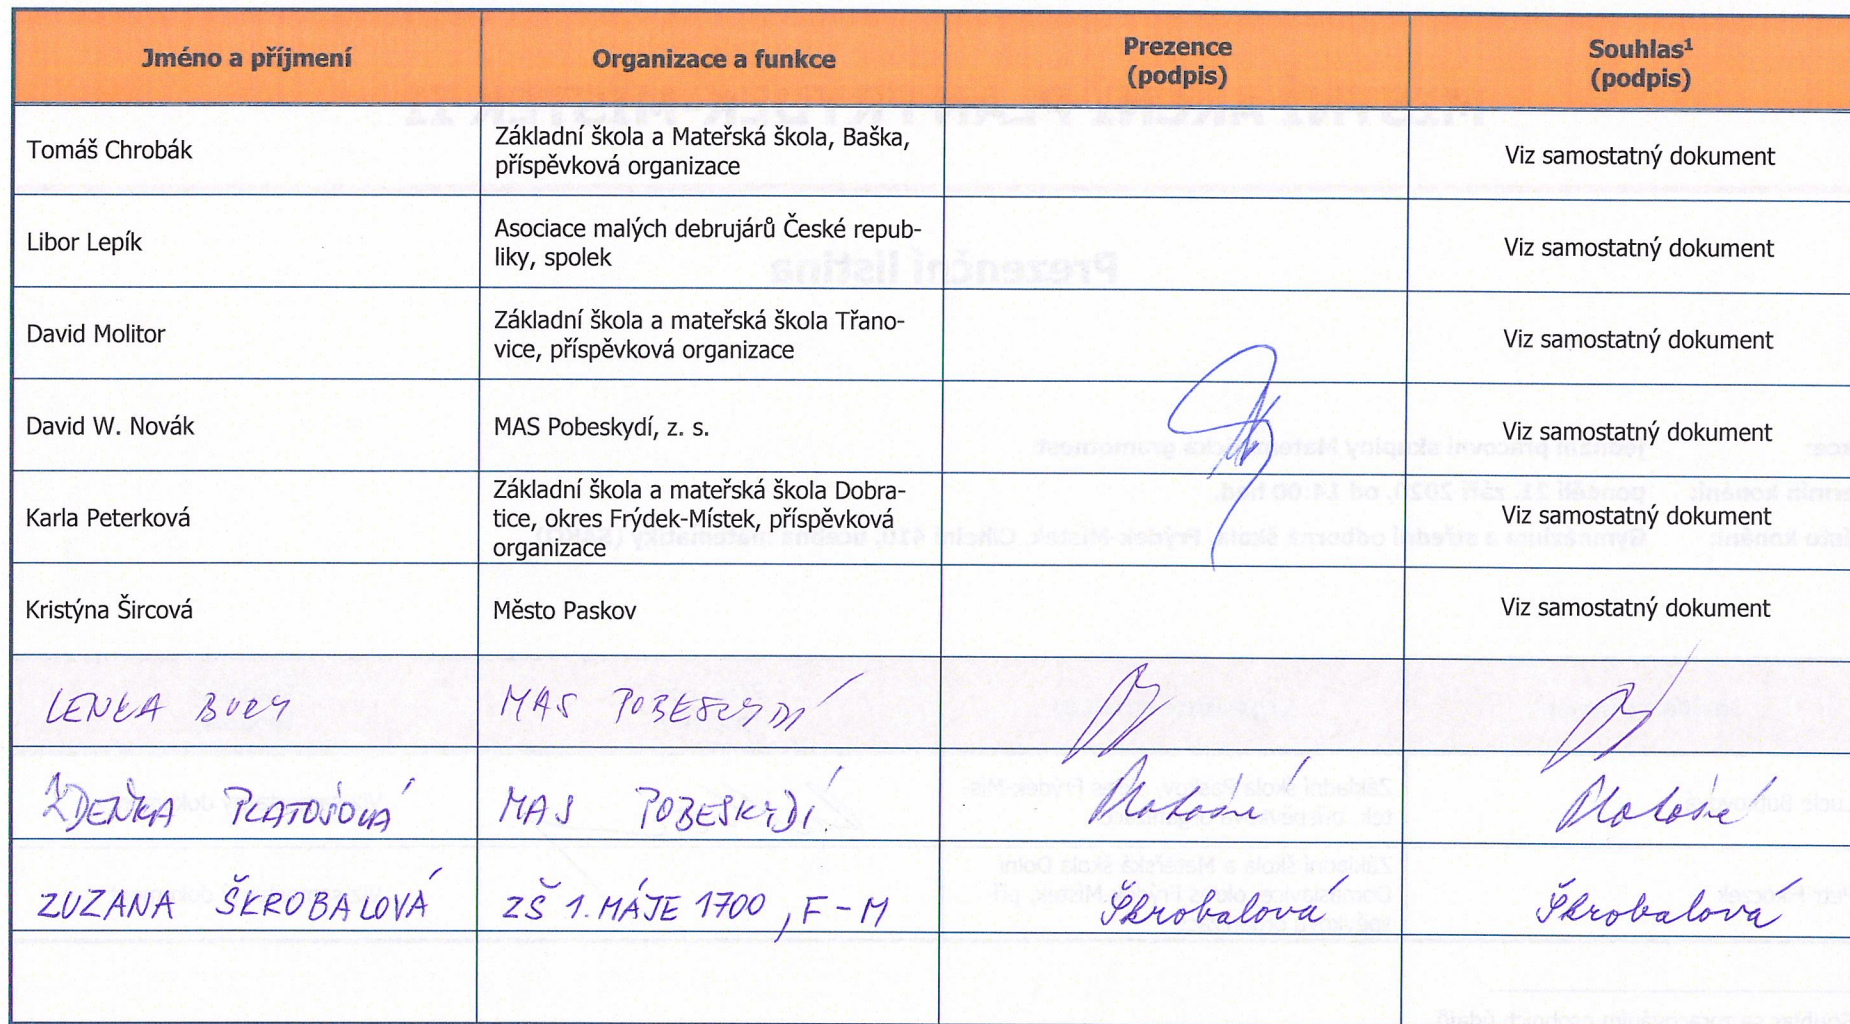 Jméno a příjmení
Organizace a funkce
Prezence
(podpis)
Souhlas¹
(podpis)
Tomáš Chrobák
Základní škola a Mateřská škola, Baška,
příspěvková organizace
Viz samostatný dokument
Libor Lepík
Asociace malých debrujárů České repub-
liky, spolek
Viz samostatný dokument
David Molitor
Základní škola a mateřská škola Třano-
vice, příspěvková organizace
Viz samostatný dokument
David W. Novák
MAS Pobeskydí, z. s.
Viz samostatný dokument
Karla Peterková
Základní škola a mateřská škola Dobra-
tice, okres Frýdek-Místek, příspěvková
organizace
Viz samostatný dokument
Kristýna Šircová
Město Paskov
Viz samostatný dokument
LENKA BURY
MAS POBESKYDÍ
ZDEŇKA
MAS POBESKYDÍ
ZUZANA ŠKROBALOVÁ
ZŠ 1. MÁJE 1700, F-M
Škrobalová
Škrobalová